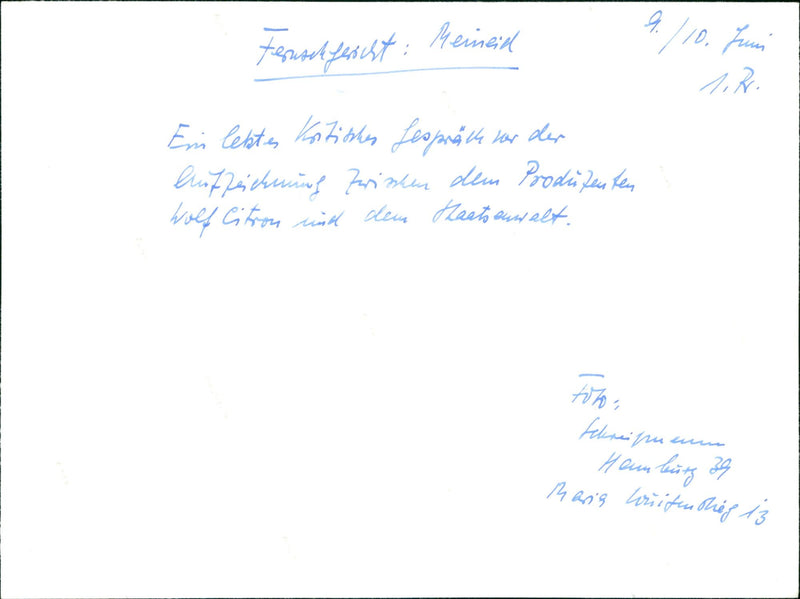 Fernsehgericht: Meineid
9./10. Juni
1. Pr.
Ein letztes Kritisches Gespräch vor der
Aufzeichnung zwischen dem Produzenten
Wolf Citron und dem Staatsanwalt.
Foto:
Hamburg 39
Maria 13